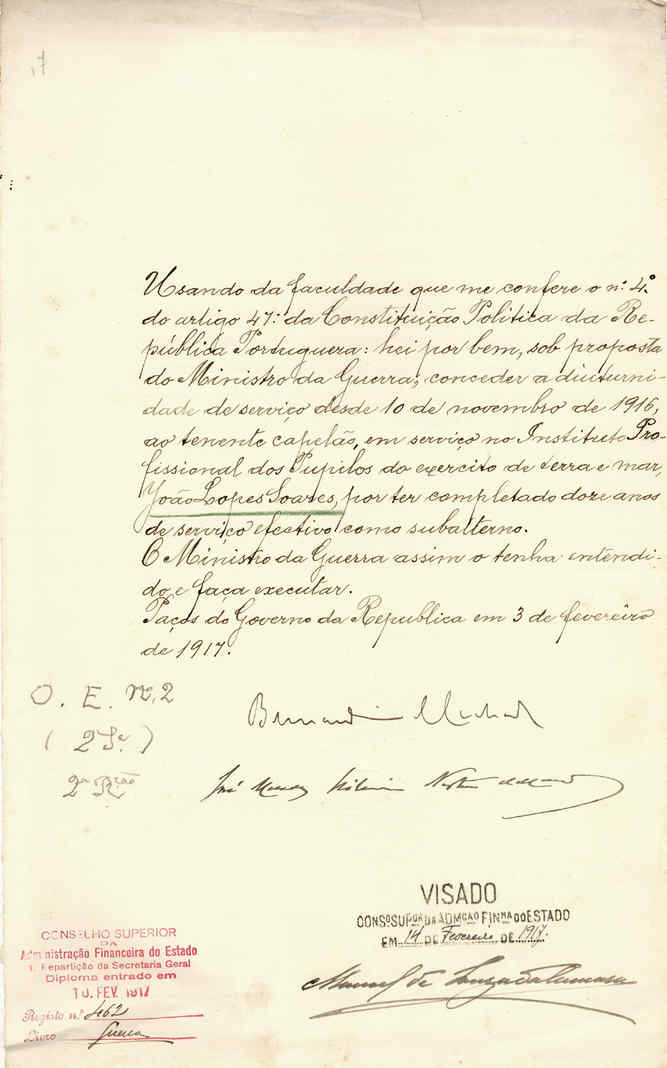 17
Usando da faculdade que me confere o nº 4º
do artigo 47º da Constituição Politica da Re-
pública Portuguesa: hei por bem, sob proposta
do Ministro da Guerra, conceder a diuturni-
dade de serviço desde 10 de novembro de 1916,
ao tenente capelão, em serviço no Instituto Pro-
fissional dos Pupilos do exercito de terra e mar,
João Lopes Soares, por ter completado doze anos
de serviço efectivo como subalterno.
O Ministro da Guerra assim o tenha entendi-
do e faça executar.
Paços do Governo da Republica em 3 de fevereiro
de 1917.
O. E. nº, 2
(2ª Sª.)
2ª Rção
Bernardino Machado
José Mendes Ribeiro Norton de Matos
VISADO
CONSº SUPOR DA ADMÇÃO FINRA DO ESTADO
EM 14 DE Fevereiro DE 1917.
Manuel de Sousa da Camara
CONSELHO SUPERIOR
DA
Administração Financeira do Estado
1. Repartição da Secretaria Geral
Diploma entrado em
10. FEV. 1917
Registo n.º 462
Livro Guerra